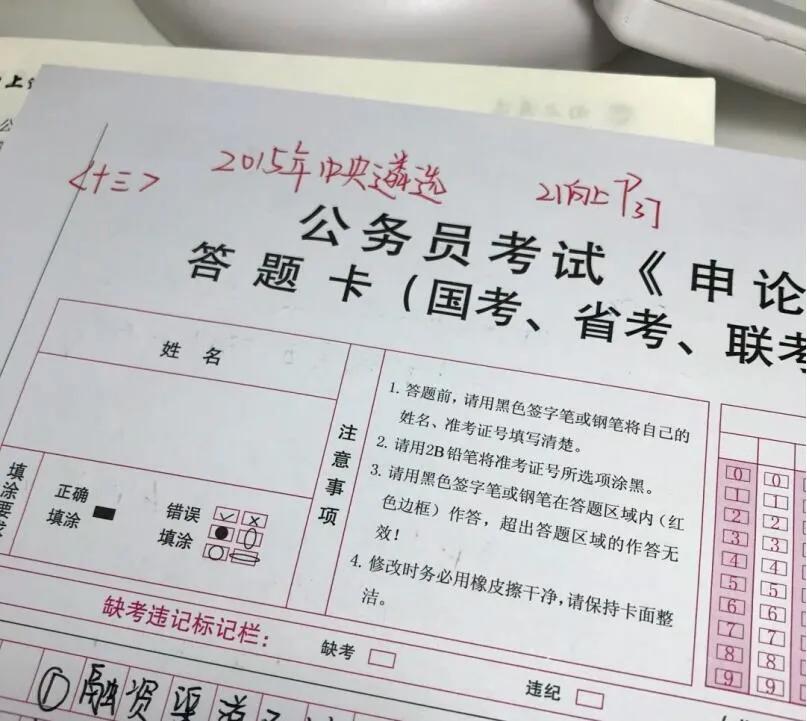 <十三> 2015年中央遴选
公务员考试《申论
答题卡（国考、省考、联考
姓 名
注意事项
1. 答题前，请用黑色签字笔或钢笔将自己的
姓名、准考证号填写清楚。
2. 请用2B铅笔将准考证号所选项涂黑。
3. 请用黑色签字笔或钢笔在答题区域内（红
色边框）作答，超出答题区域的作答无
效！
4. 修改时务必用橡皮擦干净，请保持卡面整
洁。
填涂要求
正确
填涂
错误
填涂
0 0
1 1
2 2
3 3
4 4
5 5
6 6
7 7
8 8
9 9
缺考违记标记栏：
缺考
违纪
①融资渠道